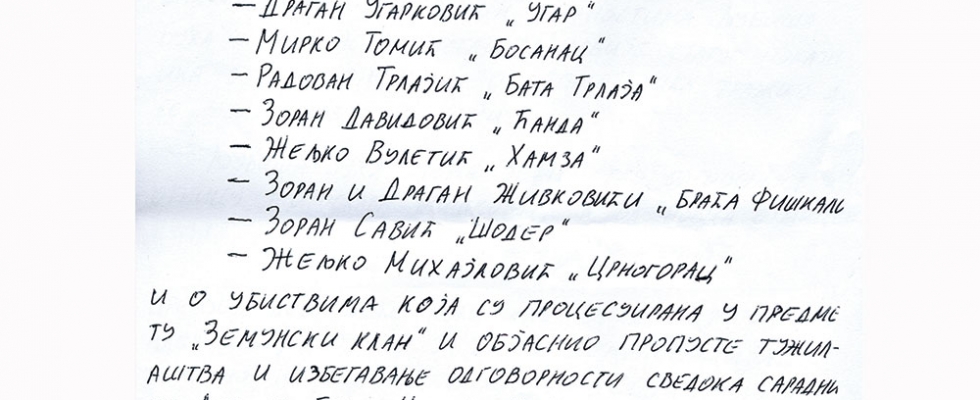 — Драган Угарковић „Угар"
— Мирко Томић „Босанац"
— Радован Трлајић „Бата Трлаја"
— Зоран Давидовић „Ћанда"
— Жељко Вулетић „Хамза"
— Зоран и Драган Живковићи „Браћа Фишкали
— Зоран Савић „Шодер"
— Жељко Михајловић „Црногорац"
и о убиствима која су процесуирана у предме
ту „Земунски клан" и објаснио пропусте тужил-
аштва и избегавање одговорности сведока сарадни